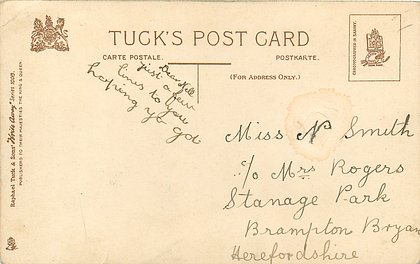 TUCK'S POST CARD
CARTE POSTALE.
POSTKARTE.
(FOR ADDRESS ONLY.)
Raphael Tuck & Sons' "Write Away"
PUBLISHERS TO THEIR MAJESTIES THE KING & QUEEN.
Dear Nell
just a few
lines to you
hoping yo got
Miss N Smith
c/o Mrs Rogers
Stanage Park
Brampton Bryan
Herefordshire